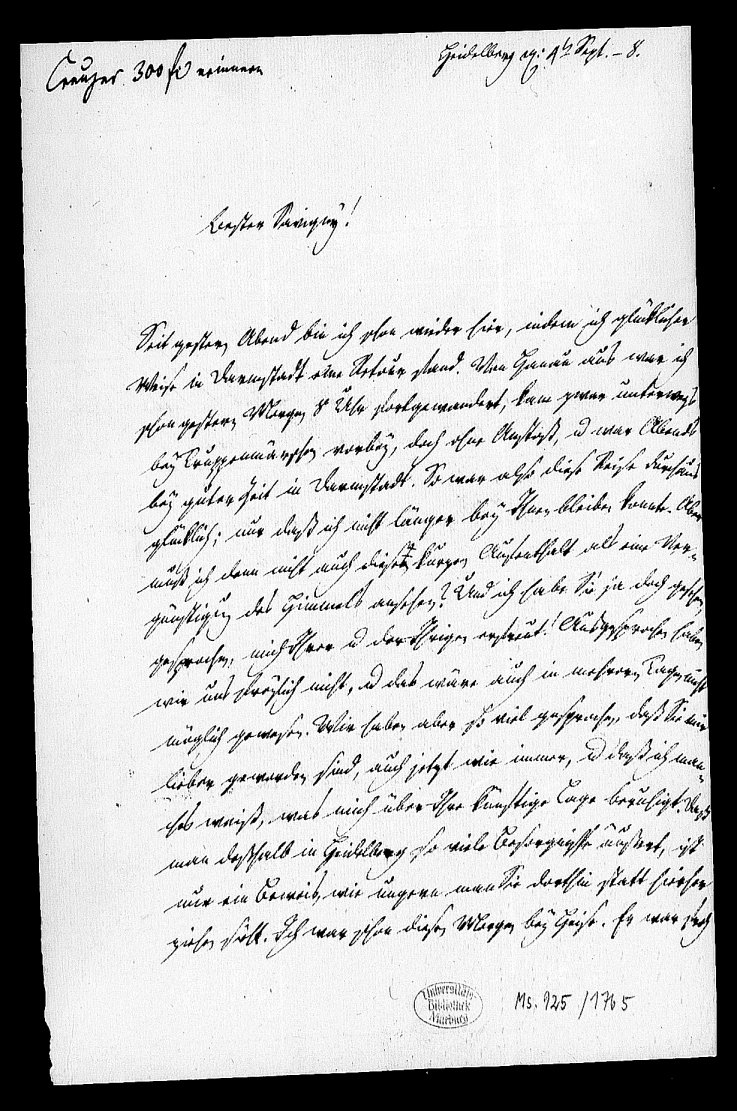 Creuzer 300 fl erinnern
Heidelberg 4 Sept. – 8.
Bester Savigny!
Seit gestern Abend bin ich schon wieder hier, indem ich glücklicher
Weise in Darmstadt eine Retour fand. Von Hanau aus war ich
schon gestern Morgen 8 Uhr fortgewandert, kam zwar unterwegs
bey Truppenmärschen vorbey, doch ohne Anstoß, u war Abends
bey guter Zeit in Darmstadt. So war also diese Reise durchaus
glücklich; nur daß ich nicht länger bey Ihnen bleiben konnte. Aber
muß ich denn nicht auch diesen kurzen Aufenthalt als eine Ver-
günstigung des Himmels ansehen? Und ich habe Sie ja doch gesehen,
gesprochen, mich Ihrer u der Ihrigen erfreut! Ausgesprochen haben
wir uns freylich nicht, u das wäre auch in mehrern Tagen nicht
möglich gewesen. Wir haben aber so viel gesprochen, daß Sie mir
lieber geworden sind, auch jetzt wie immer, u daß ich man-
ches weiß, was mich über Ihre künftige Lage beruhigt. Daß
man deßhalb in Heidelberg so viele Besorgnisse äußert, ist
nur ein Beweis, wie ungern man Sie dorthin statt hierher
ziehen sieht. Ich war schon diesen Morgen bey Heise. Er war
Universitäts-
Bibliothek
Marburg
Ms. 925 / 1765